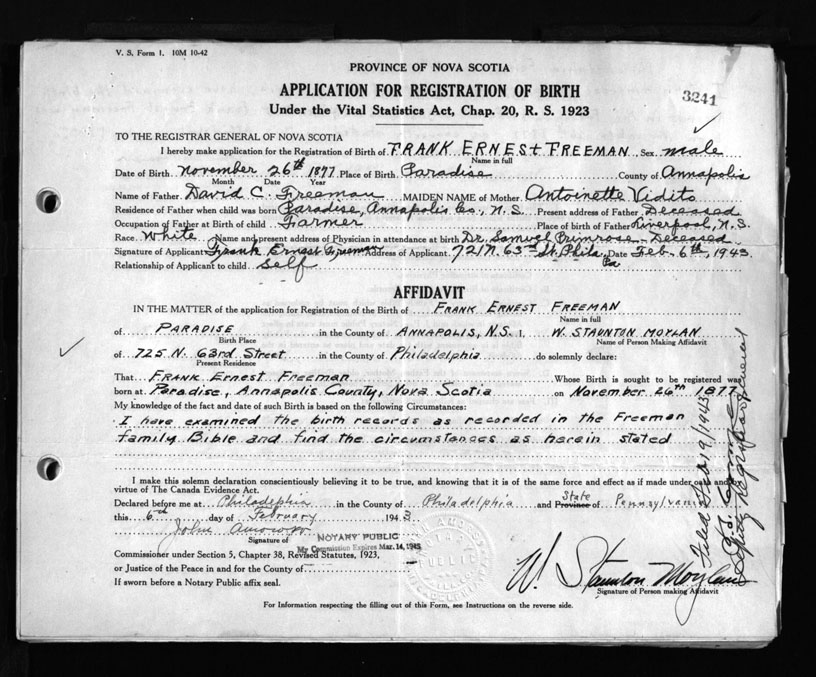 V. S. Form 1. 10M 10-42
PROVINCE OF NOVA SCOTIA
APPLICATION FOR REGISTRATION OF BIRTH
3241
Under the Vital Statistics Act, Chap. 20, R. S. 1923
TO THE REGISTRAR GENERAL OF NOVA SCOTIA
I hereby make application for the Registration of Birth of FRANK ERNEST FREEMAN Sex male
Name in full
Date of Birth November 26th 1877 Place of Birth Paradise County of Annapolis
Month Date Year
Name of Father David C. Freeman MAIDEN NAME of Mother Antoinette Vidito
Residence of Father when child was born Paradise, Annapolis Co., N.S. Present address of Father Deceased
Occupation of Father at Birth of child Farmer Place of birth of Father Liverpool, N.S.
Race White Name and present address of Physician in attendance at birth Dr. Samuel Primrose - Deceased
Signature of Applicant Frank Ernest Freeman Address of Applicant 721 N. 63rd St. Phila, Pa Date Feb. 6th, 1943.
Relationship of Applicant to child self
AFFIDAVIT
IN THE MATTER of the application for Registration of the Birth of FRANK ERNEST FREEMAN
Name in full
of PARADISE in the County of ANNAPOLIS, N.S. I, W. STAUNTON MOYLAN
Birth Place Name of Person Making Affidavit
of 725 N. 63rd Street in the County of Philadelphia do solemnly declare:
Present Residence
That FRANK ERNEST FREEMAN Whose Birth is sought to be registered was
born at Paradise, Annapolis County, Nova Scotia on November 26th 1877
My knowledge of the fact and date of such Birth is based on the following Circumstances:
I have examined the birth records as recorded in the Freeman
family Bible and find the circumstances as herein stated
I make this solemn declaration conscientiously believing it to be true, and knowing that it is of the same force and effect as if made under oath and
virtue of The Canada Evidence Act.
Declared before me at Philadelphia in the County of Philadelphia and Province State of Pennsylvania
this 6th day of February 1943
John
Signature of NOTARY PUBLIC
My Commission Expires Mar. 14, 1945
Commissioner under Section 5, Chapter 38, Revised Statutes, 1923,
or Justice of the Peace in and for the County of
If sworn before a Notary Public affix seal.
W. Staunton Moylan
Signature of Person making Affidavit
For Information respecting the filling out of this Form, see Instructions on the reverse side.
Filed Feb 19/1943
Deputy Registrar General